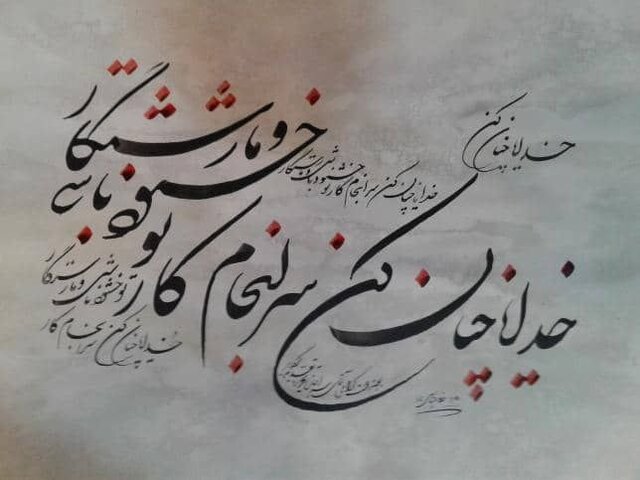 خدایا چنان کن
خدایا چنان کن سرانجام کار تو خشنود باشی و ما رستگار
خدایا چنان کن سرانجام کار
تو خشنود باشی و ما رستگار
تو خشنود باشی و ما رستگار
خدایا چنان کن سرانجام کار